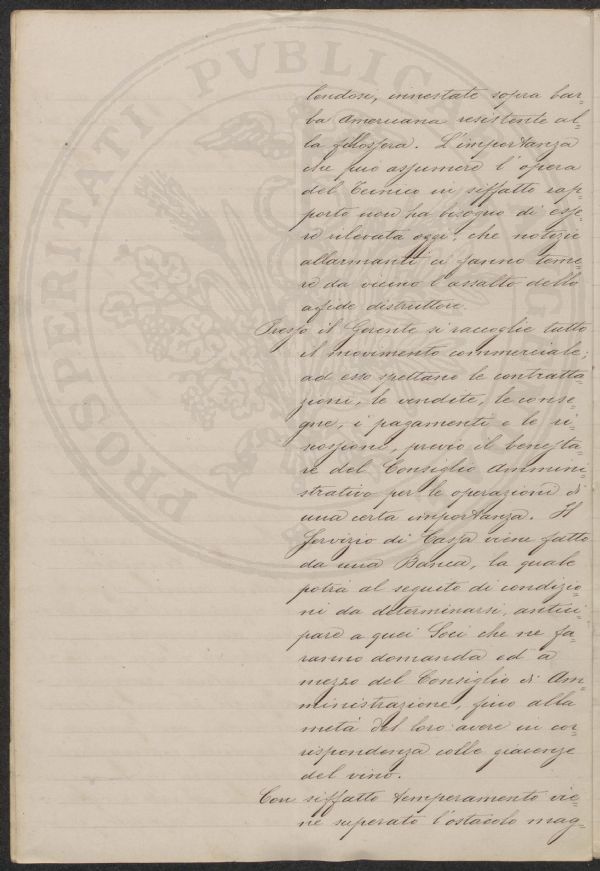 lendose, innestate sopra bar=
ba Americana resistente al=
la fillossera. L'importanza
che può assumere l'opera
del Tecnico in siffatto rap=
porto non ha bisogno di esse=
re rilevata oggi, che notizie
allarmanti ci fanno teme=
re da vicino l'assalto dello
afide distruttore.
Presso il Gerente si raccoglie tutto
il movimento commerciale;
ad esso spettano le contratta=
zioni, le vendite, le conse=
gne, i pagamenti e le ri=
scossioni, previo il benesta=
re del Consiglio Ammini=
strativo per le operazioni di
una certa importanza. Il
Servizio di Cassa viene fatto
da una Banca, la quale
potrà al seguito di condizio=
ni da determinarsi, antici=
pare a quei Soci che ne fa=
ranno domanda ed a
mezzo del Consiglio di Am=
ministrazione, fino alla
metà del loro avere in cor=
rispondenza colle giacenze
del vino.
Con siffatto temperamento vie=
ne superato l'ostacolo mag=
PROSPERITATI PVBLIC